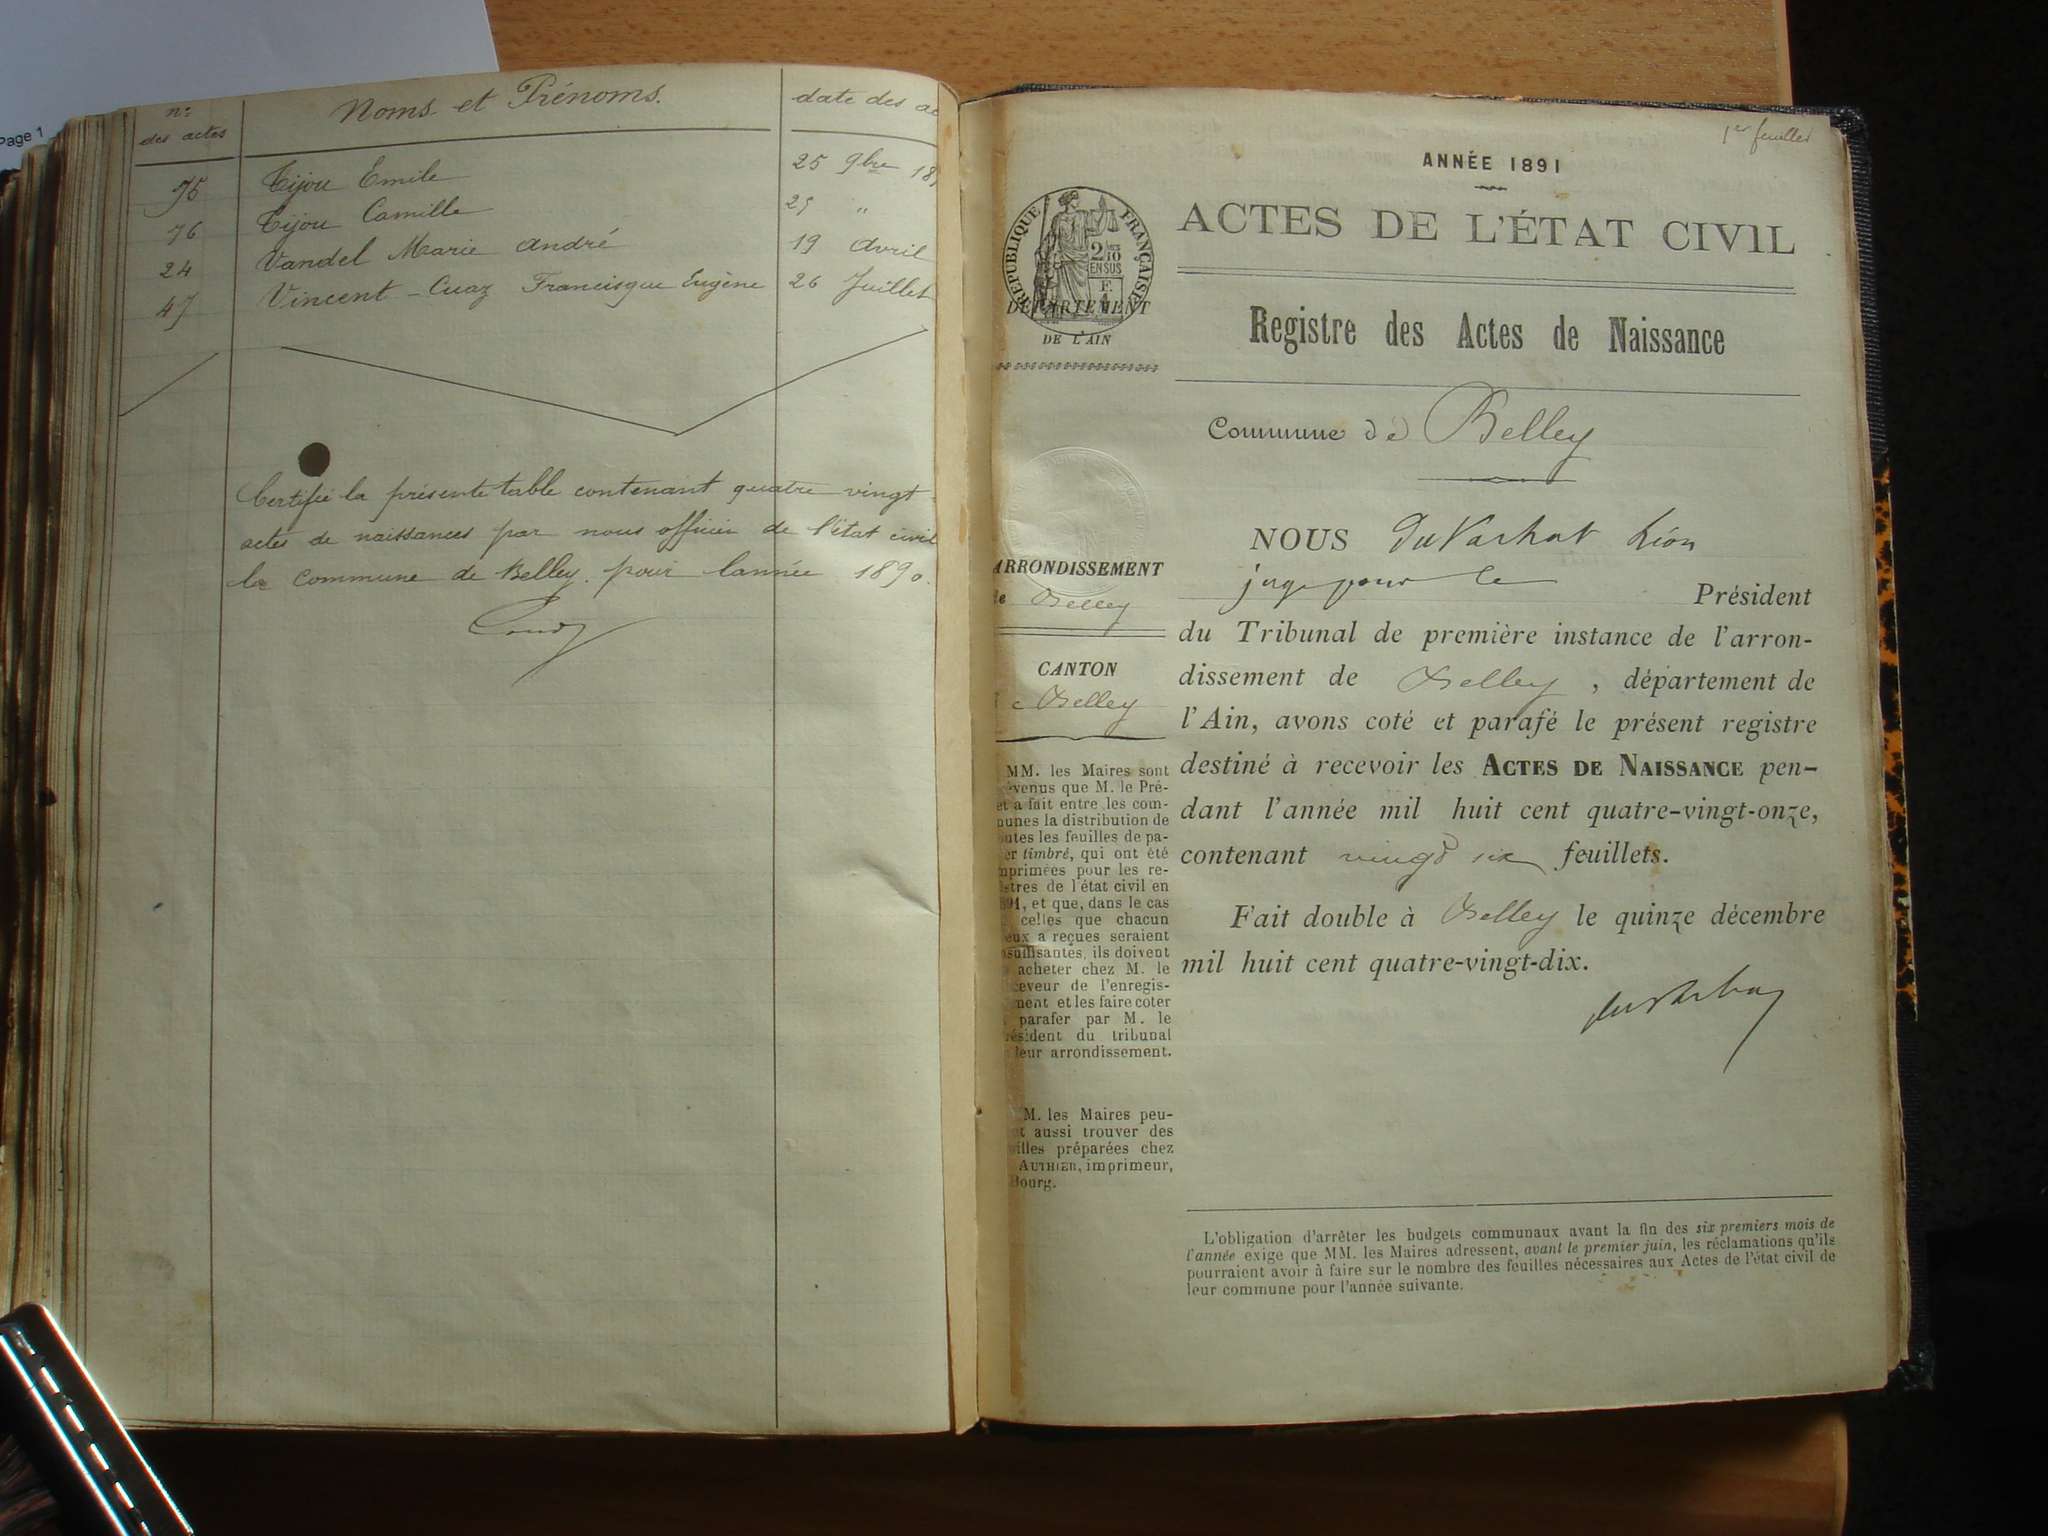 Page 1
n°
des actes
Noms et Prénoms.
date des ac
75 Tijou Emile 25 9bre 18
76 Tijou Camille 25 "
24 Vandel Marie André 19 Avril
47 Vincent-Cuaz Francisque Eugène 26 Juillet
Certifié la présente table contenant quatre vingt
actes de naissances par nous officier de l'état civil
la commune de Belley. pour lannée 1890.
1er feuillet
ANNÉE 1891
RÉPUBLIQUE FRANÇAISE
2/10
EN SUS
F.
DÉPARTEMENT
DE L'AIN
ACTES DE L'ÉTAT CIVIL
Registre des Actes de Naissance
Commune de Belley
ARRONDISSEMENT
de Belley
CANTON
de Belley
MM. les Maires sont
évenus que M. le Pré-
et a fait entre les com-
munes la distribution de
outes les feuilles de pa-
er timbré, qui ont été
mprimées pour les re-
istres de l'état civil en
891, et que, dans le cas
celles que chacun
eux a reçues seraient
nsuffisantes, ils doivent
acheter chez M. le
ceveur de l'enregis-
ment et les faire coter
parafer par M. le
résident du tribunal
leur arrondissement.
M. les Maires peu-
t aussi trouver des
uilles préparées chez
AUTHIER, imprimeur,
Bourg.
NOUS Léon
juge pour le Président
du Tribunal de première instance de l'arron-
dissement de Belley, département de
l'Ain, avons coté et parafé le présent registre
destiné à recevoir les ACTES DE NAISSANCE pen-
dant l'année mil huit cent quatre-vingt-onze,
contenant vingt six feuillets.
Fait double à Belley le quinze décembre
mil huit cent quatre-vingt-dix.
L'obligation d'arrêter les budgets communaux avant la fin des six premiers mois de
l'année exige que MM. les Maires adressent, avant le premier juin, les réclamations qu'ils
pourraient avoir à faire sur le nombre des feuilles nécessaires aux Actes de l'état civil de
leur commune pour l'année suivante.